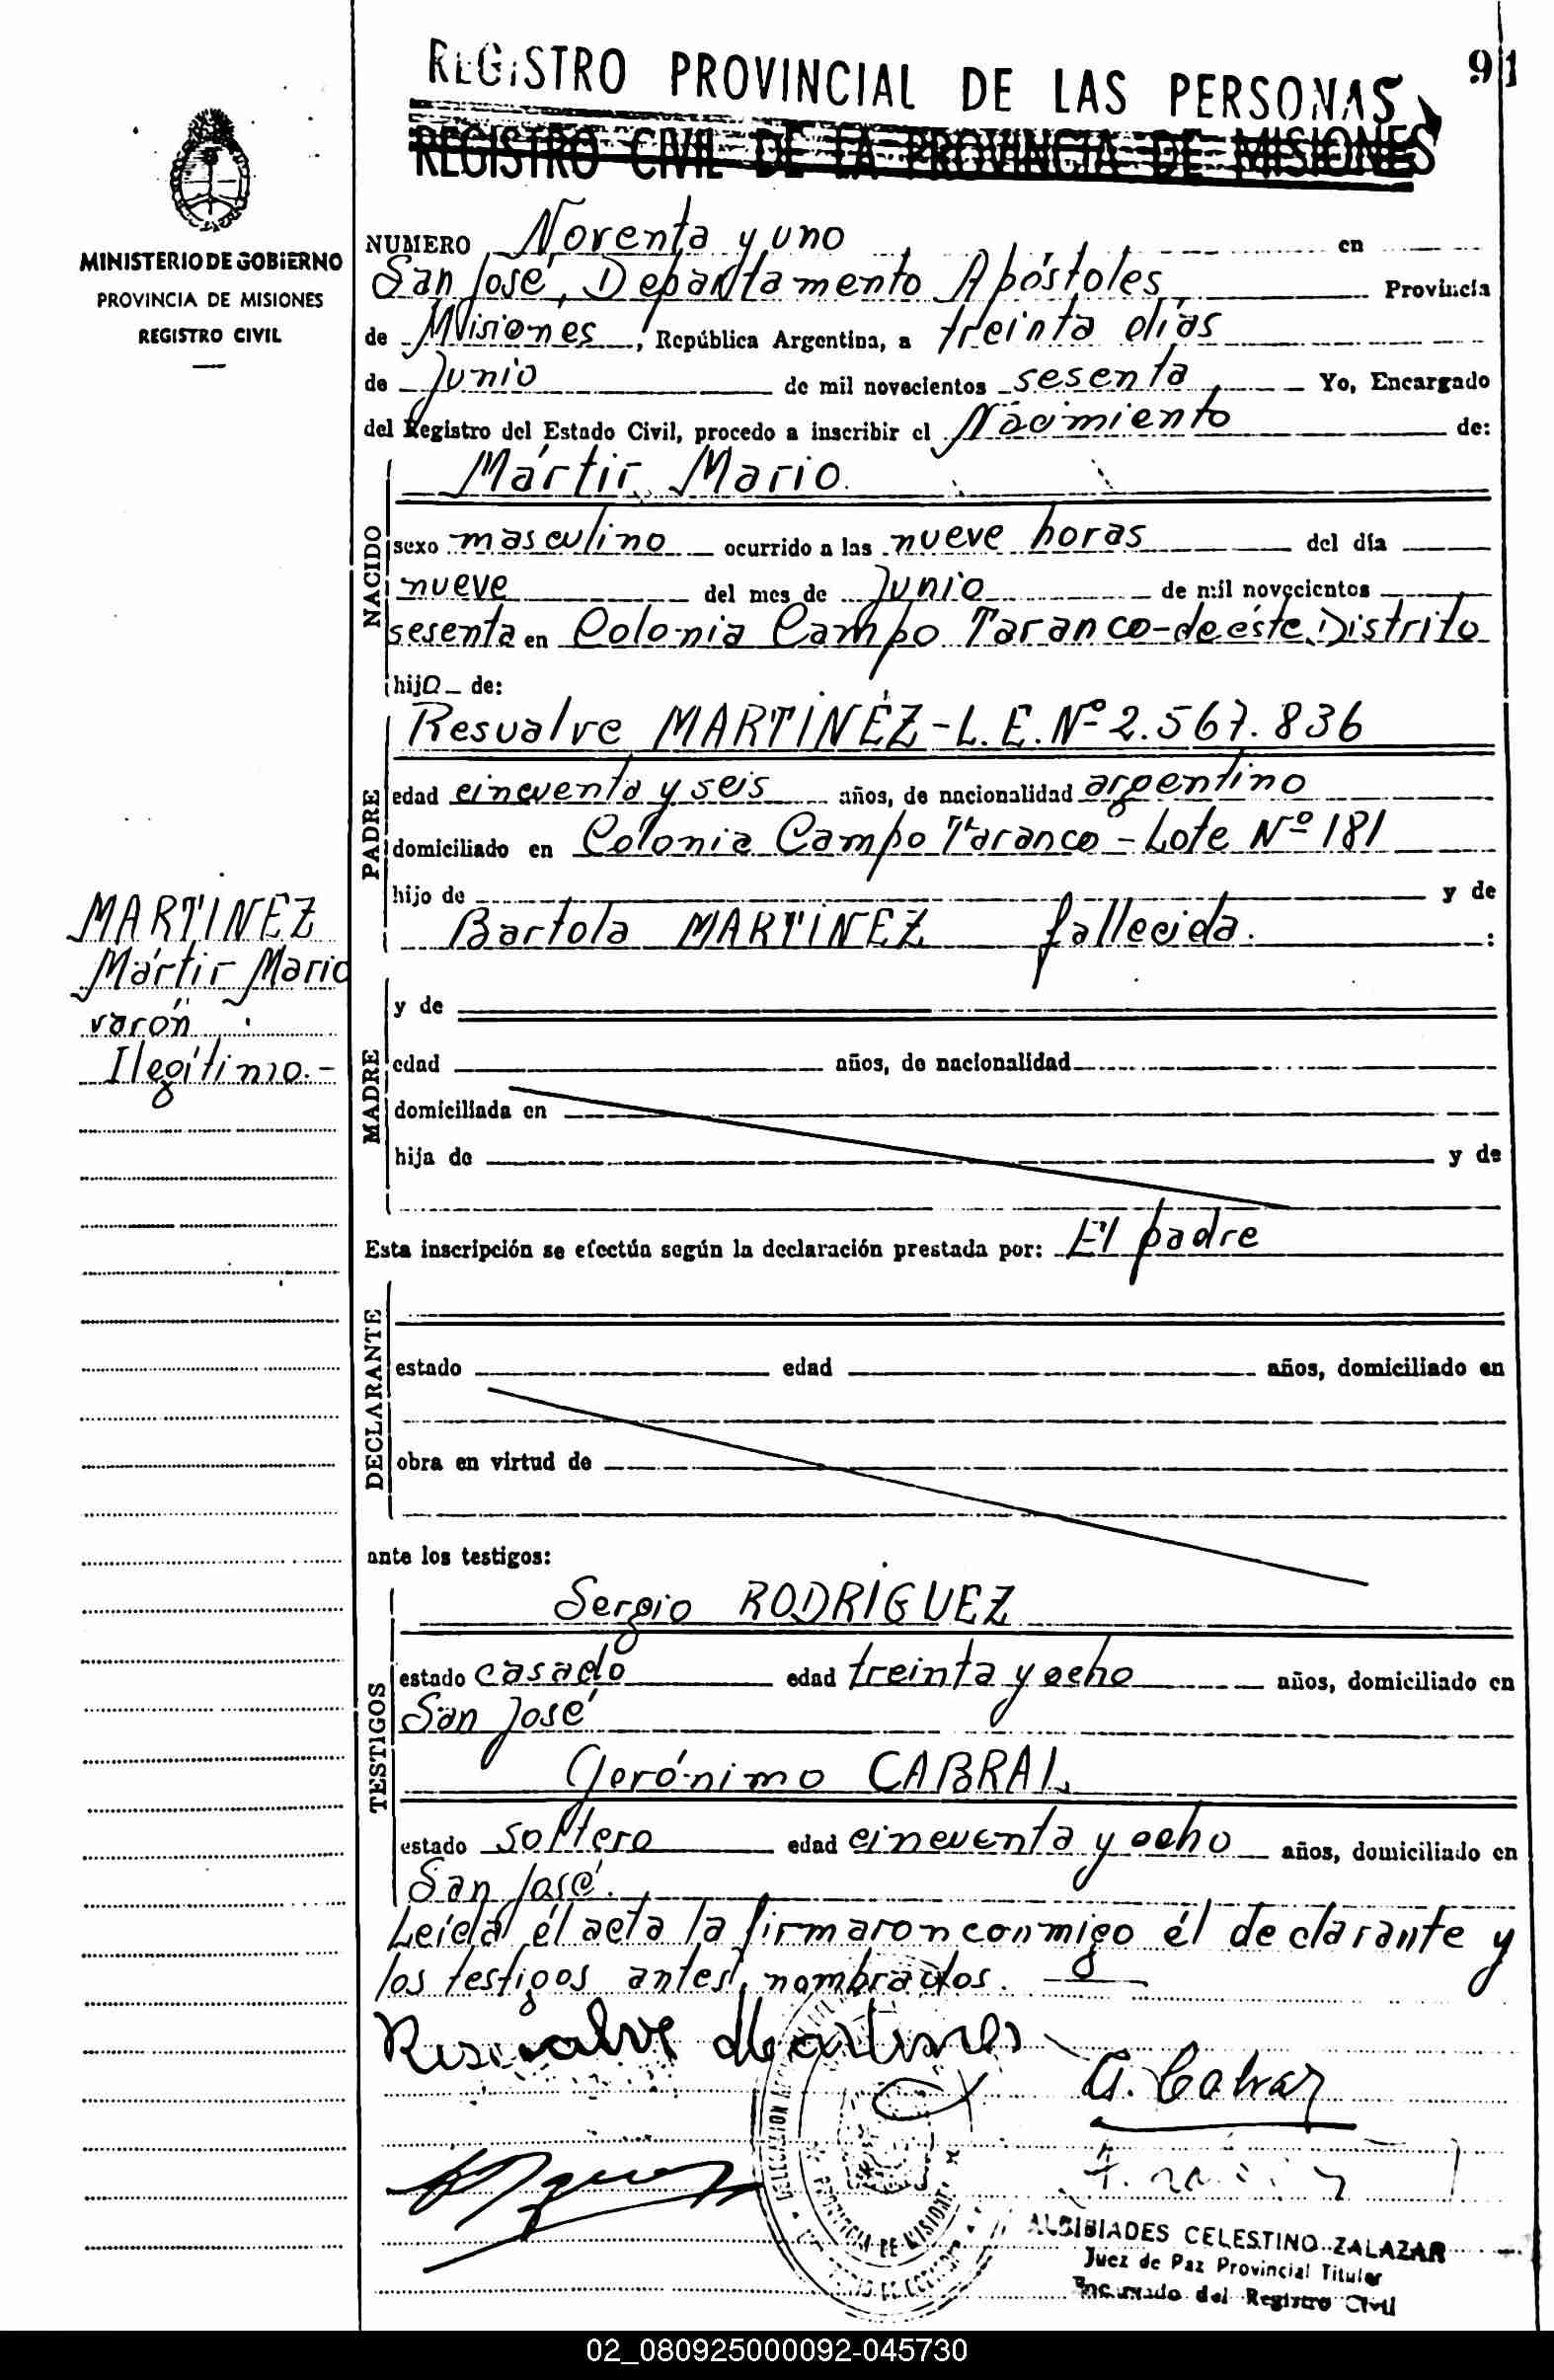 REGISTRO PROVINCIAL DE LAS PERSONAS
91
REGISTRO CIVIL DE LA PROVINCIA DE MISIONES
MINISTERIO DE GOBIERNO
PROVINCIA DE MISIONES
REGISTRO CIVIL
NUMERO Noventa y uno en
San José, Departamento Apóstoles, Provincia
de Misiones, República Argentina, a treinta días
de Junio de mil novecientos sesenta Yo, Encargado
del Registro del Estado Civil, procedo a inscribir el Nacimiento de:
Mártir Mario.
NACIDO
sexo masculino ocurrido a las nueve horas del día
nueve del mes de Junio de mil novecientos
sesenta en Colonia Campo Taranco-de éste Distrito
hijo de:
Resualve MARTÍNEZ-L.E.Nº 2.567.836
PADRE
edad cincuenta y seis años, de nacionalidad argentino
domiciliado en Colonia Campo Taranco - Lote Nº 181
hijo de y de
Bartola MARTÍNEZ fallecida.
MARTINEZ
Mártir Mario
varón
Ilegítimo.-
MADRE
y de
edad años, de nacionalidad
domiciliada en
hija de y de
Esta inscripción se efectúa según la declaración prestada por: El padre
DECLARANTE
estado edad años, domiciliado en
obra en virtud de
ante los testigos:
Sergio RODRÍGUEZ
TESTIGOS
estado casado edad treinta y ocho años, domiciliado en
San José
Gerónimo CABRAL
estado soltero edad cincuenta y ocho años, domiciliado en
San José.
Leída él acta la firmaron conmigo él declarante y
los testigos antes nombrados.
Resualve Martines
G. Cabral
PROVINCIA DE MISIONES
ALCIBIADES CELESTINO ZALAZAR
Juez de Paz Provincial Titular
Encargado del Registro Civil
02_080925000092-045730